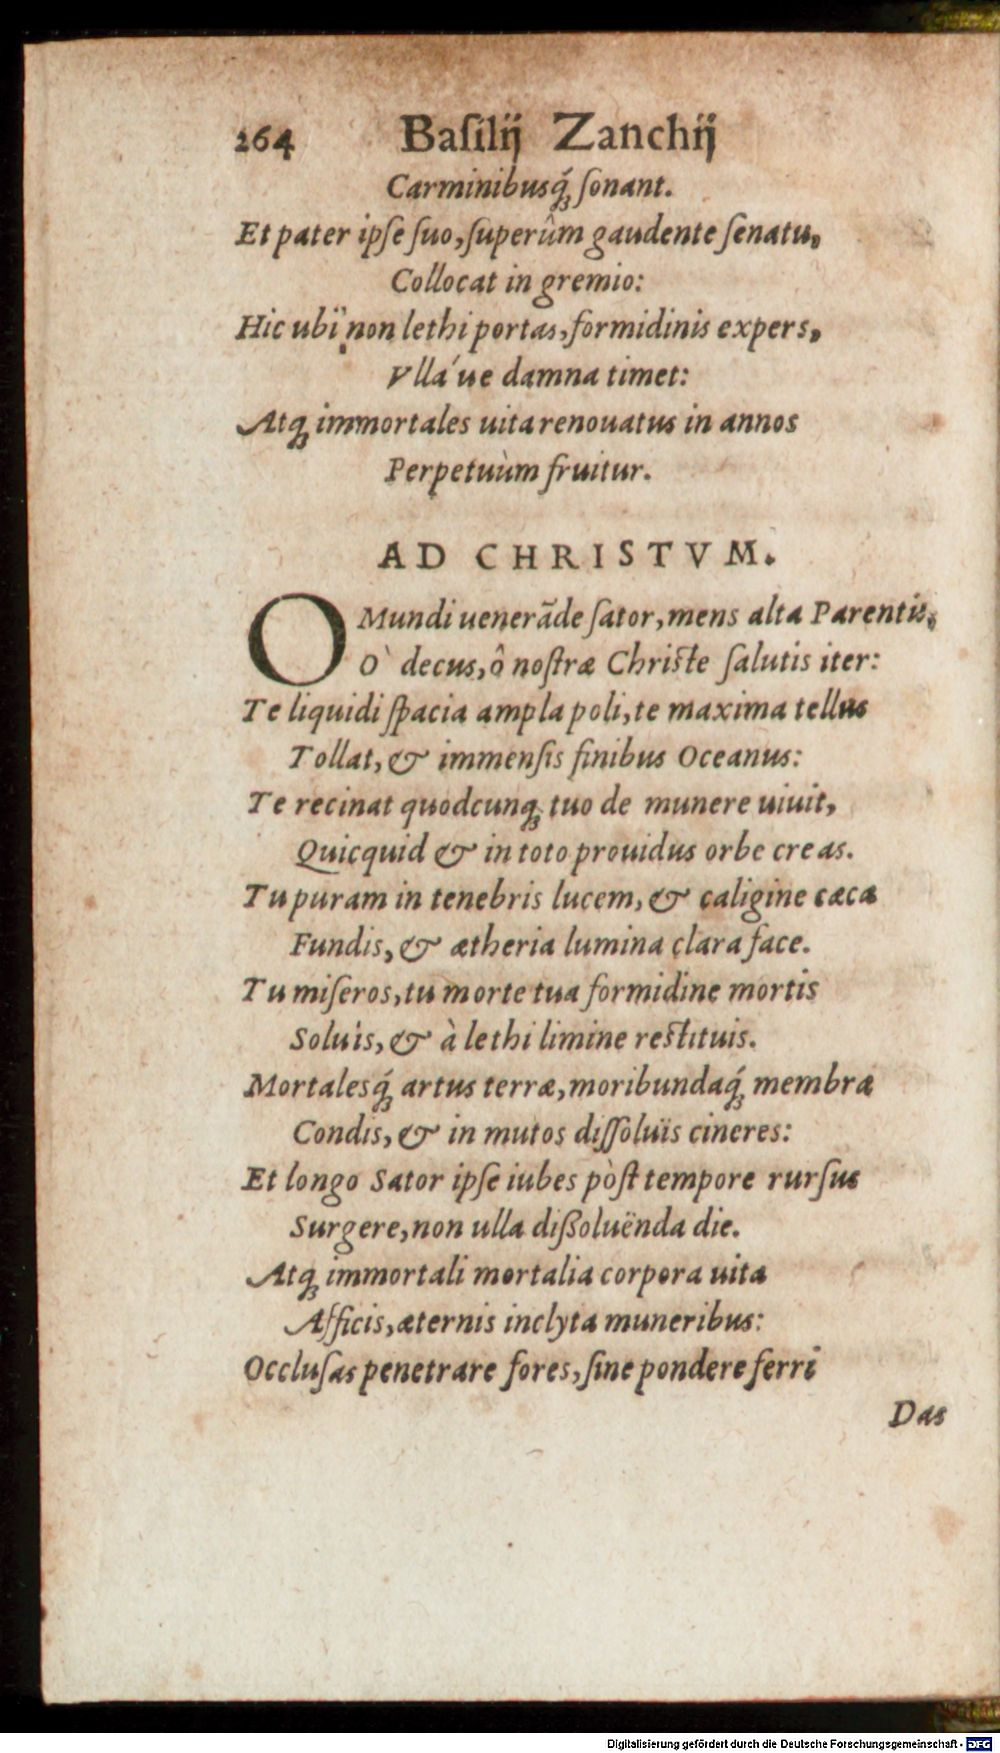 264 Baſilij Zanchij
Carminibusq́; ſonant.
Et pater ipſe ſuo, ſuperûm gaudente ſenatu,
Collocat in gremio:
Hic ubi non lethi portas, formidinis expers,
Vllá ue damna timet:
Atq; immortales uita renouatus in annos
Perpetuùm fruitur.
AD CHRISTVM.
O Mundi uenerãde ſator, mens alta Parentis,
O` decus, ô noſtræ Chriſte ſalutis iter:
Te liquidi ſpacia ampla poli, te maxima tellus
Tollat, & immenſis finibus Oceanus:
Te recinat quodcunq; tuo de munere uiuit,
Quicquid & in toto prouidus orbe creas.
Tu puram in tenebris lucem, & caligine cæca
Fundis, & ætheria lumina clara face.
Tu miſeros, tu morte tua formidine mortis
Soluis, & à lethi limine reſtituis.
Mortalesq́; artus terræ, moribundaq́; membra
Condis, & in mutos diſſoluïs cineres:
Et longo Sator ipſe iubes pòſt tempore rurſus
Surgere, non ulla dißoluënda die.
Atq; immortali mortalia corpora uita
Afficis, æternis inclyta muneribus:
Occluſas penetrare fores, ſine pondere ferri
Das
Digitalisierung gefördert durch die Deutsche Forschungsgemeinschaft - DFG